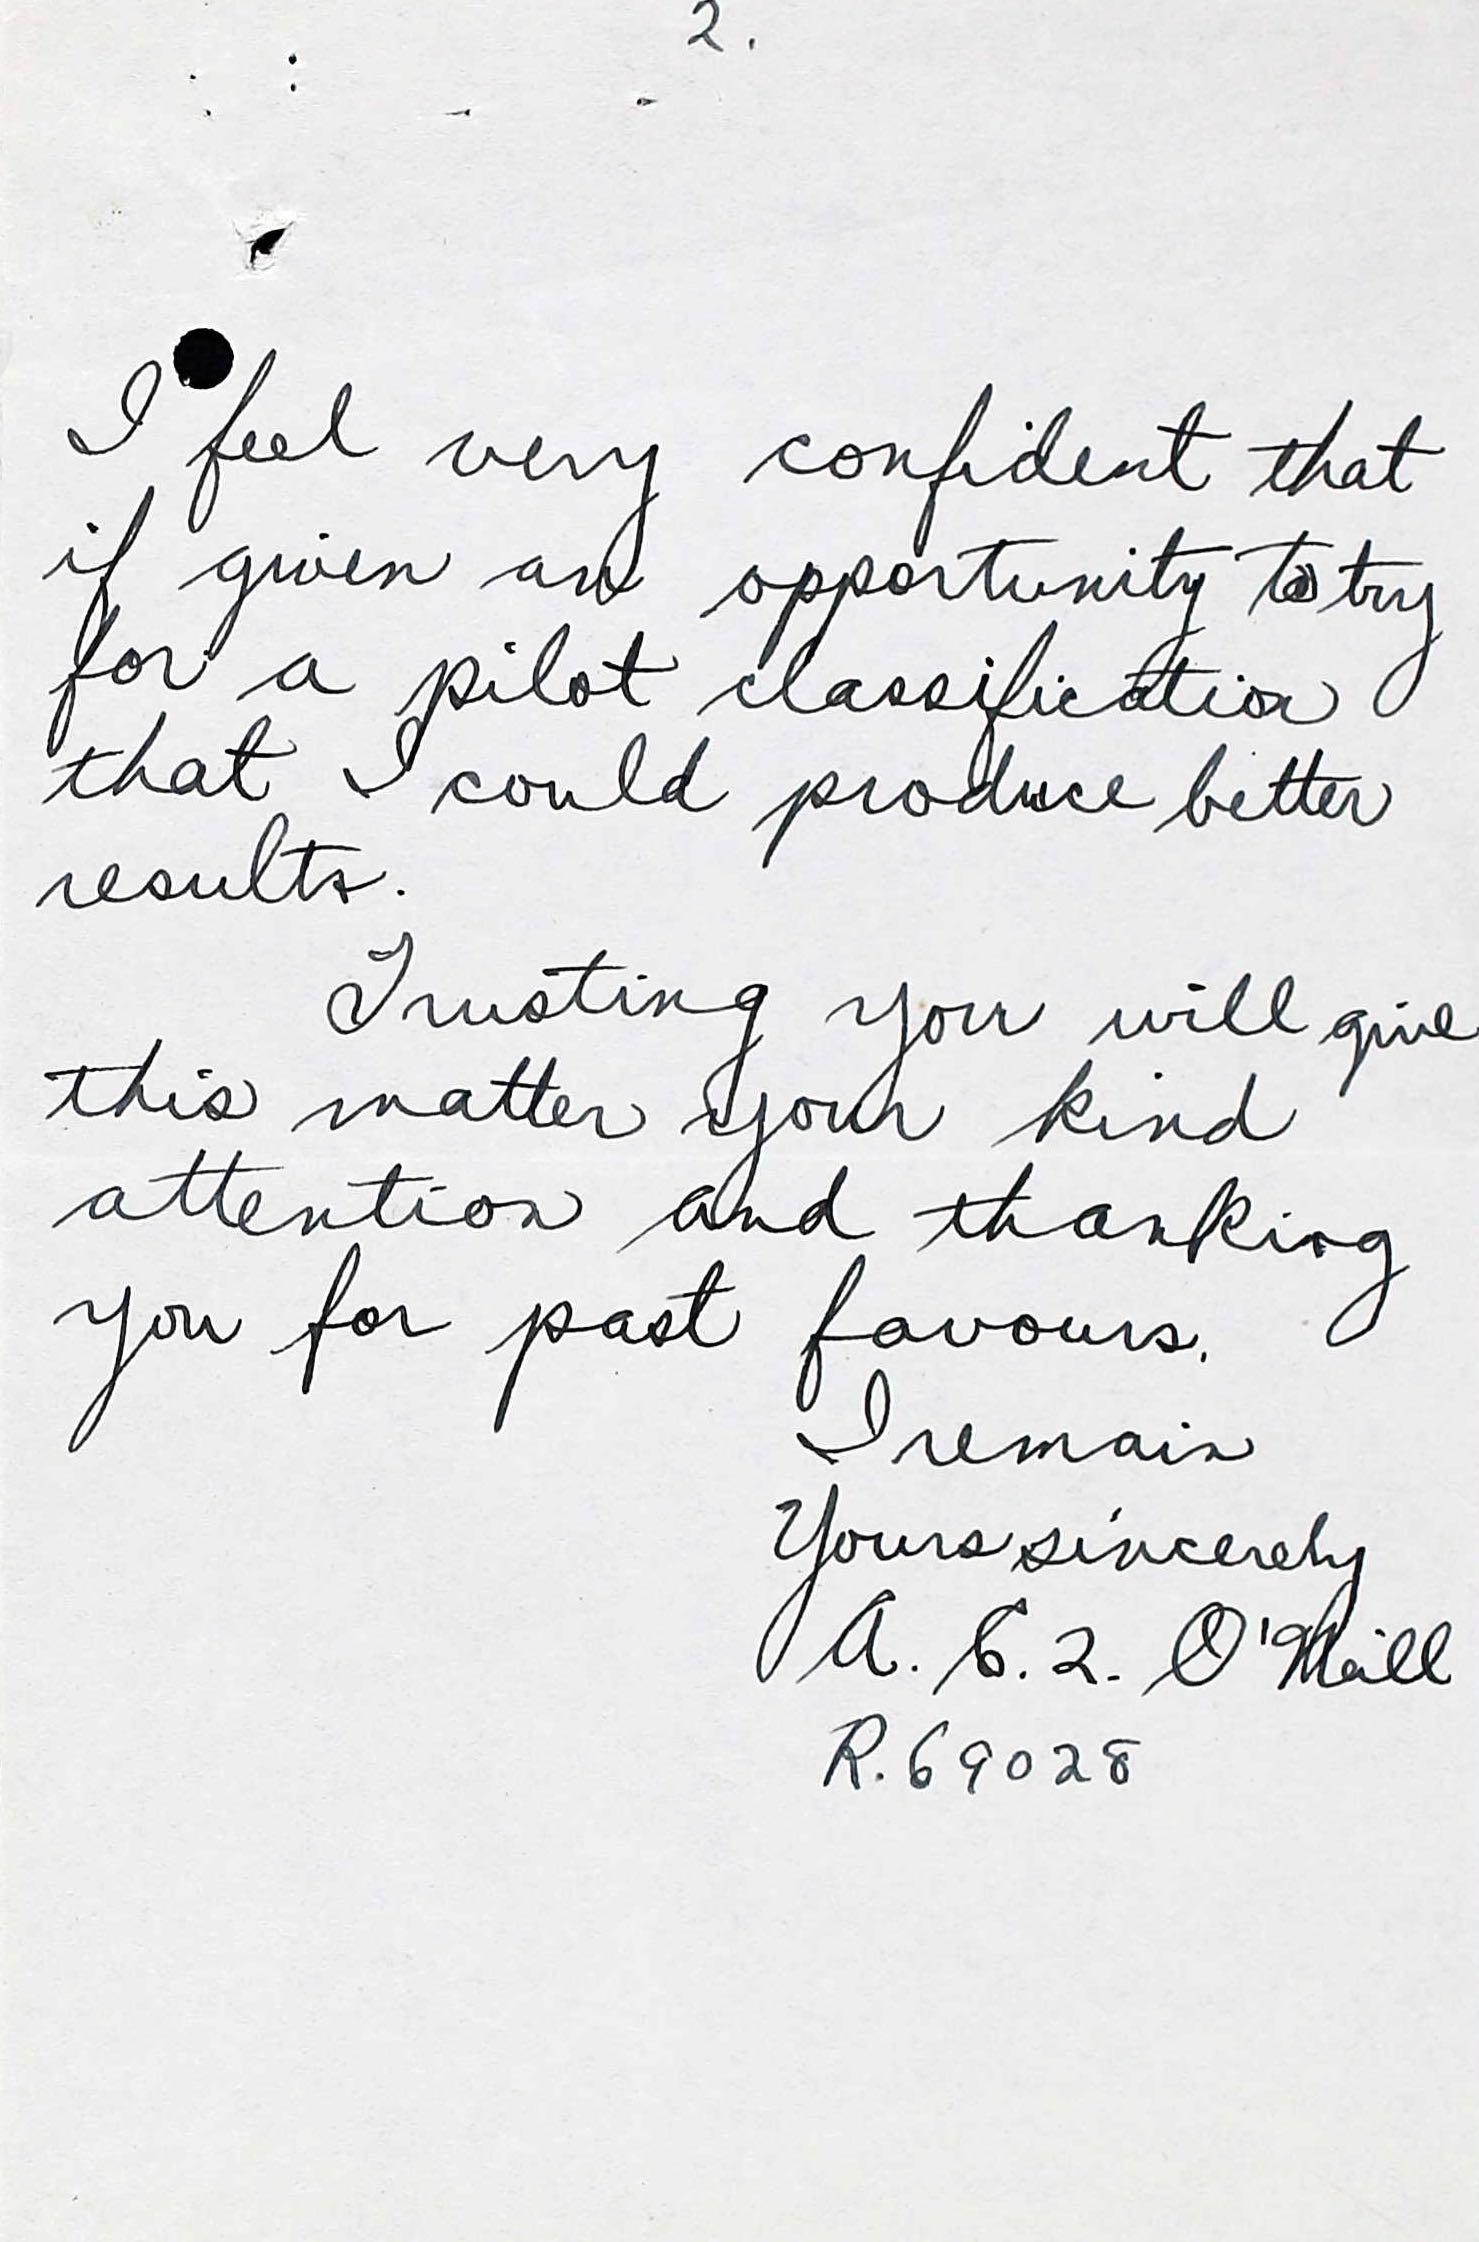 2.
I feel very confident that
if given an opportunity to try
for a pilot classification
that I could produce better
results.
Trusting you will give
this matter your kind
attention and thanking
you for past favours.
I remain
Yours sincerely
A. C. 2. O'Neill
R. 69028